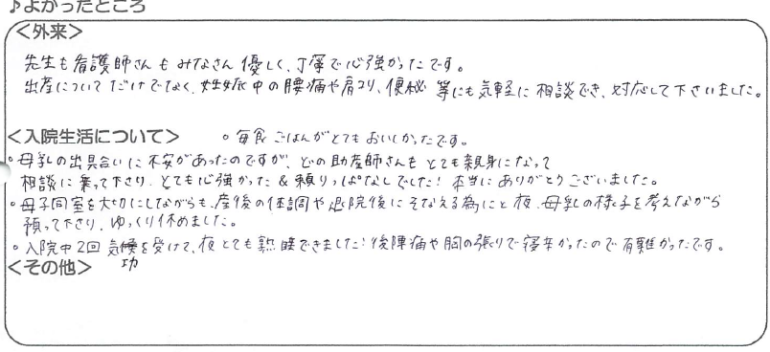 ♪よかったところ
<外来>
先生も看護師さんもみなさん優しく、丁寧で心強かったです。
出産についてだけでなく、妊娠中の腰痛や肩コリ、便秘等にも気軽に相談でき、対応して下さいました。
<入院生活について>　。毎食ごはんがとてもおいしかったです。
。母乳の出具合いに不安があったのですが、どの助産師さんもとても親身になって
相談に乗って下さり、とても心強かった&頼りっぱなしでした！本当にありがとうございました。
。母子同室を大切にしながらも、産後の体調や退院後にそなえる為にと夜、母乳の様子を考えながら
預って下さり、ゆっくり休めました。
。入院中2回気功を受けて、夜とても熟睡できました！後陣痛や胸の張りで寝辛かったので有難かったです。
<その他>